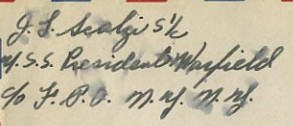 J. S. Scalzi S 1/c
U.S.S. President Warfield
c/o F. P. O. N.Y. N.Y.